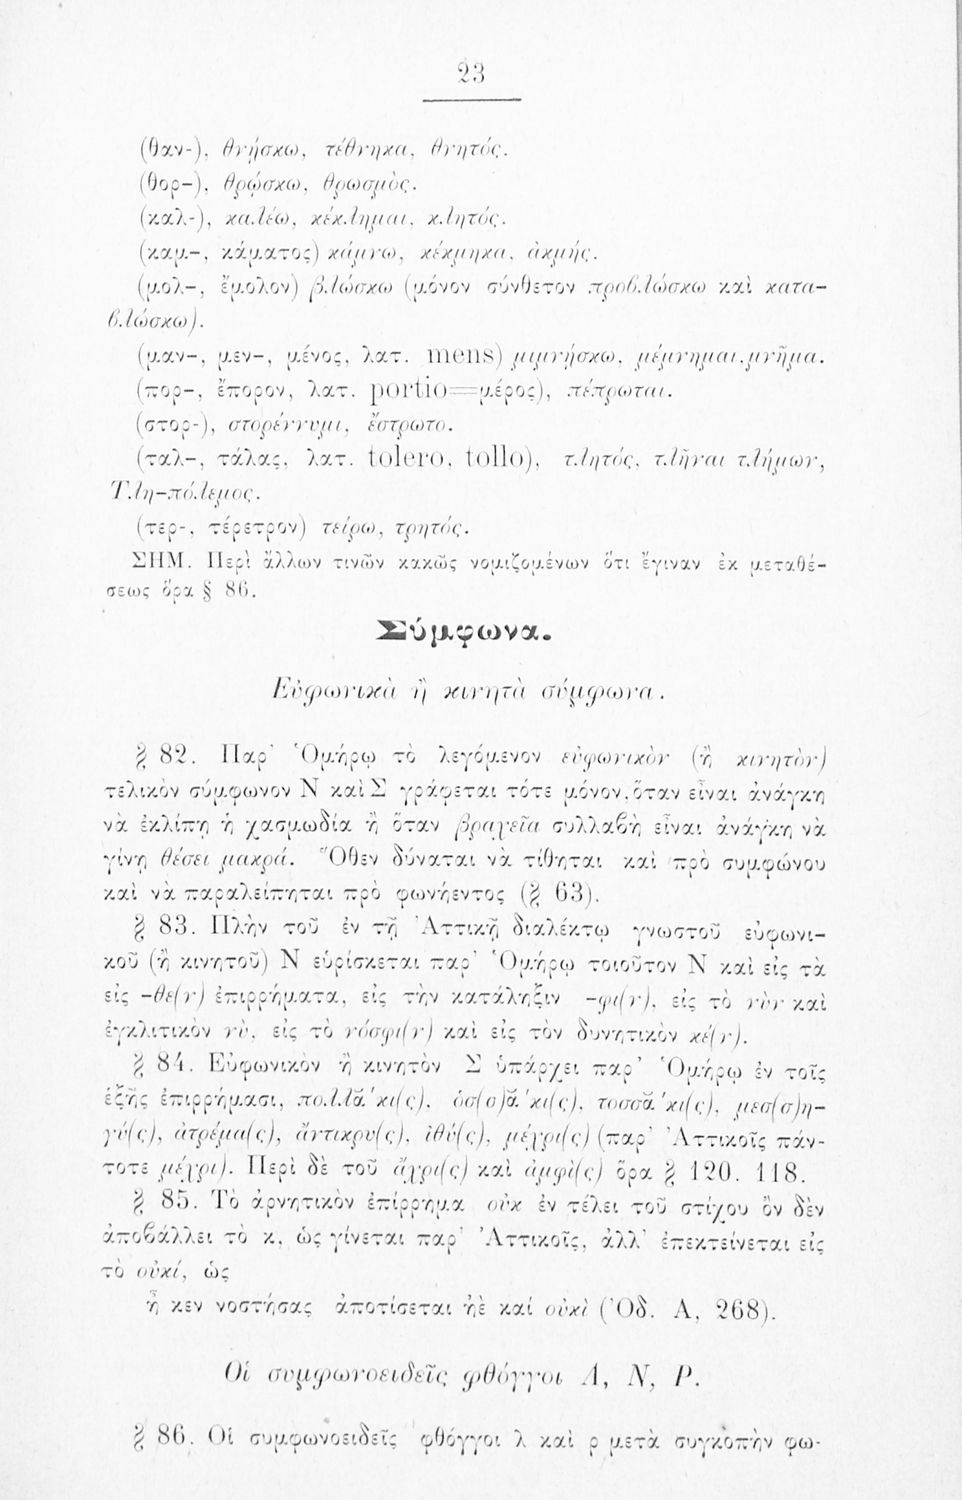 23
(θαν-), θνήσκω, τέθνηκα, θνητός.
(θορ-), θρώσκω, θρωσμὸς.
(καλ-), καλέω, κέκλημαι, κλητός.
(καμ-, κάματος) κάμνω, κέκμηκα, ἀκμής.
(μολ-, ἔμολον) βλώσκω (μόνον σύνθετον προβλώσκω καὶ κατα-
βλώσκω).
(μαν-, μεν-, μένος, λατ. mens) μιμνήσκω, μέμνημαι, μνῆμα.
(πορ-, ἔπορον, λατ. portio=μέρος), πέπρωται.
(στορ-), στορέννυμι, ἔστρωτο.
(ταλ-, τάλας, λατ. tolero, tollo), τλητός, τλῆναι τλήμων,
Τλη-πόλεμος.
(τερ-, τέρετρον) τείρω, τρητός.
ΣΗΜ. Περὶ ἄλλων τινῶν κακῶς νομιζομένων ὅτι ἔγιναν ἐκ μεταθέ-
σεως ὅρα § 86.
Σύμφωνα.
Εὐφωνικὰ ἢ κινητὰ σύμφωνα.
§ 82. Παρ' Ὁμήρῳ τὸ λεγόμενον εὐφωνικὸν (ἢ κινητὸν)
τελικὸν σύμφωνον Ν καὶ Σ γράφεται τότε μόνον, ὅταν εἶναι ἀνάγκη
νὰ ἐκλίπῃ ἡ χασμωδία ἢ ὅταν βραχεῖα συλλαβὴ εἶναι ἀνάγκη νὰ
γίνῃ θέσει μακρά. Ὅθεν δύναται νὰ τίθηται καὶ πρὸ συμφώνου
καὶ νὰ παραλείπηται πρὸ φωνήεντος (§ 63).
§ 83. Πλὴν τοῦ ἐν τῇ Ἀττικῇ διαλέκτῳ γνωστοῦ εὐφωνι-
κοῦ (ἢ κινητοῦ) Ν εὑρίσκεται παρ' Ὁμήρῳ τοιοῦτον Ν καὶ εἰς τὰ
εἰς -θε(ν) ἐπιρρήματα, εἰς τὴν κατάληξιν -φι(ν), εἰς τὸ νὺν καὶ
ἐγκλιτικὸν νὺ, εἰς τὸ νόσφι(ν) καὶ εἰς τὸν δυνητικὸν κέ(ν).
§ 84. Εὐφωνικὸν ἢ κινητὸν Σ ὑπάρχει παρ' Ὁμήρῳ ἐν τοῖς
ἑξῆς ἐπιρρήμασι, πολλάκι(ς), ὁσ(σ)άκι(ς), τοσσάκι(ς), μεσ(σ)η-
γύ(ς), ἀτρέμα(ς), ἄντικρυ(ς), ἰθύ(ς), μέχρι(ς) (παρ' Ἀττικοῖς πάν-
τοτε μέχρι). Περὶ δὲ τοῦ ἄχρι(ς) καὶ ἀμφὶ(ς) ὅρα § 120. 118.
§ 85. Τὸ ἀρνητικὸν ἐπίρρημα οὐκ ἐν τέλει τοῦ στίχου ὂν δὲν
ἀποβάλλει τὸ κ, ὡς γίνεται παρ' Ἀττικοῖς, ἀλλ' ἐπεκτείνεται εἰς
τὸ οὐκί, ὡς
ἤ κεν νοστήσας ἀποτίσεται ἠὲ καί οὐκὶ (Ὀδ. Α, 268).
Οἱ συμφωνοειδεῖς φθόγγοι Λ, Ν, Ρ.
§ 86. Οἱ συμφωνοειδεῖς φθόγγοι λ καὶ ρ μετὰ συγκοπὴν φω-